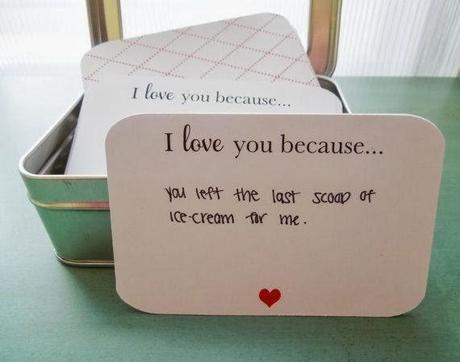 I love you because...
I love you because...
you left the last scoop of
ice-cream for me.